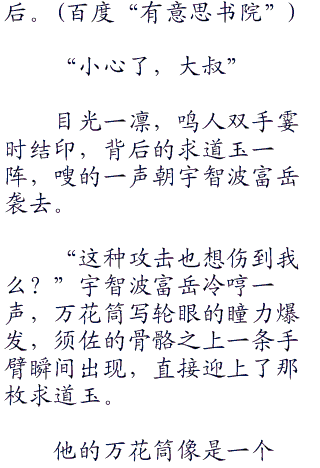 后。(百度“有意思书院”)
“小心了，大叔”
目光一凛，鸣人双手霎
时结印，背后的求道玉一
阵，嗖的一声朝宇智波富岳
袭去。
“这种攻击也想伤到我
么？”宇智波富岳冷哼一
声，万花筒写轮眼的瞳力爆
发，须佐的骨骼之上一条手
臂瞬间出现，直接迎上了那
枚求道玉。
他的万花筒像是一个